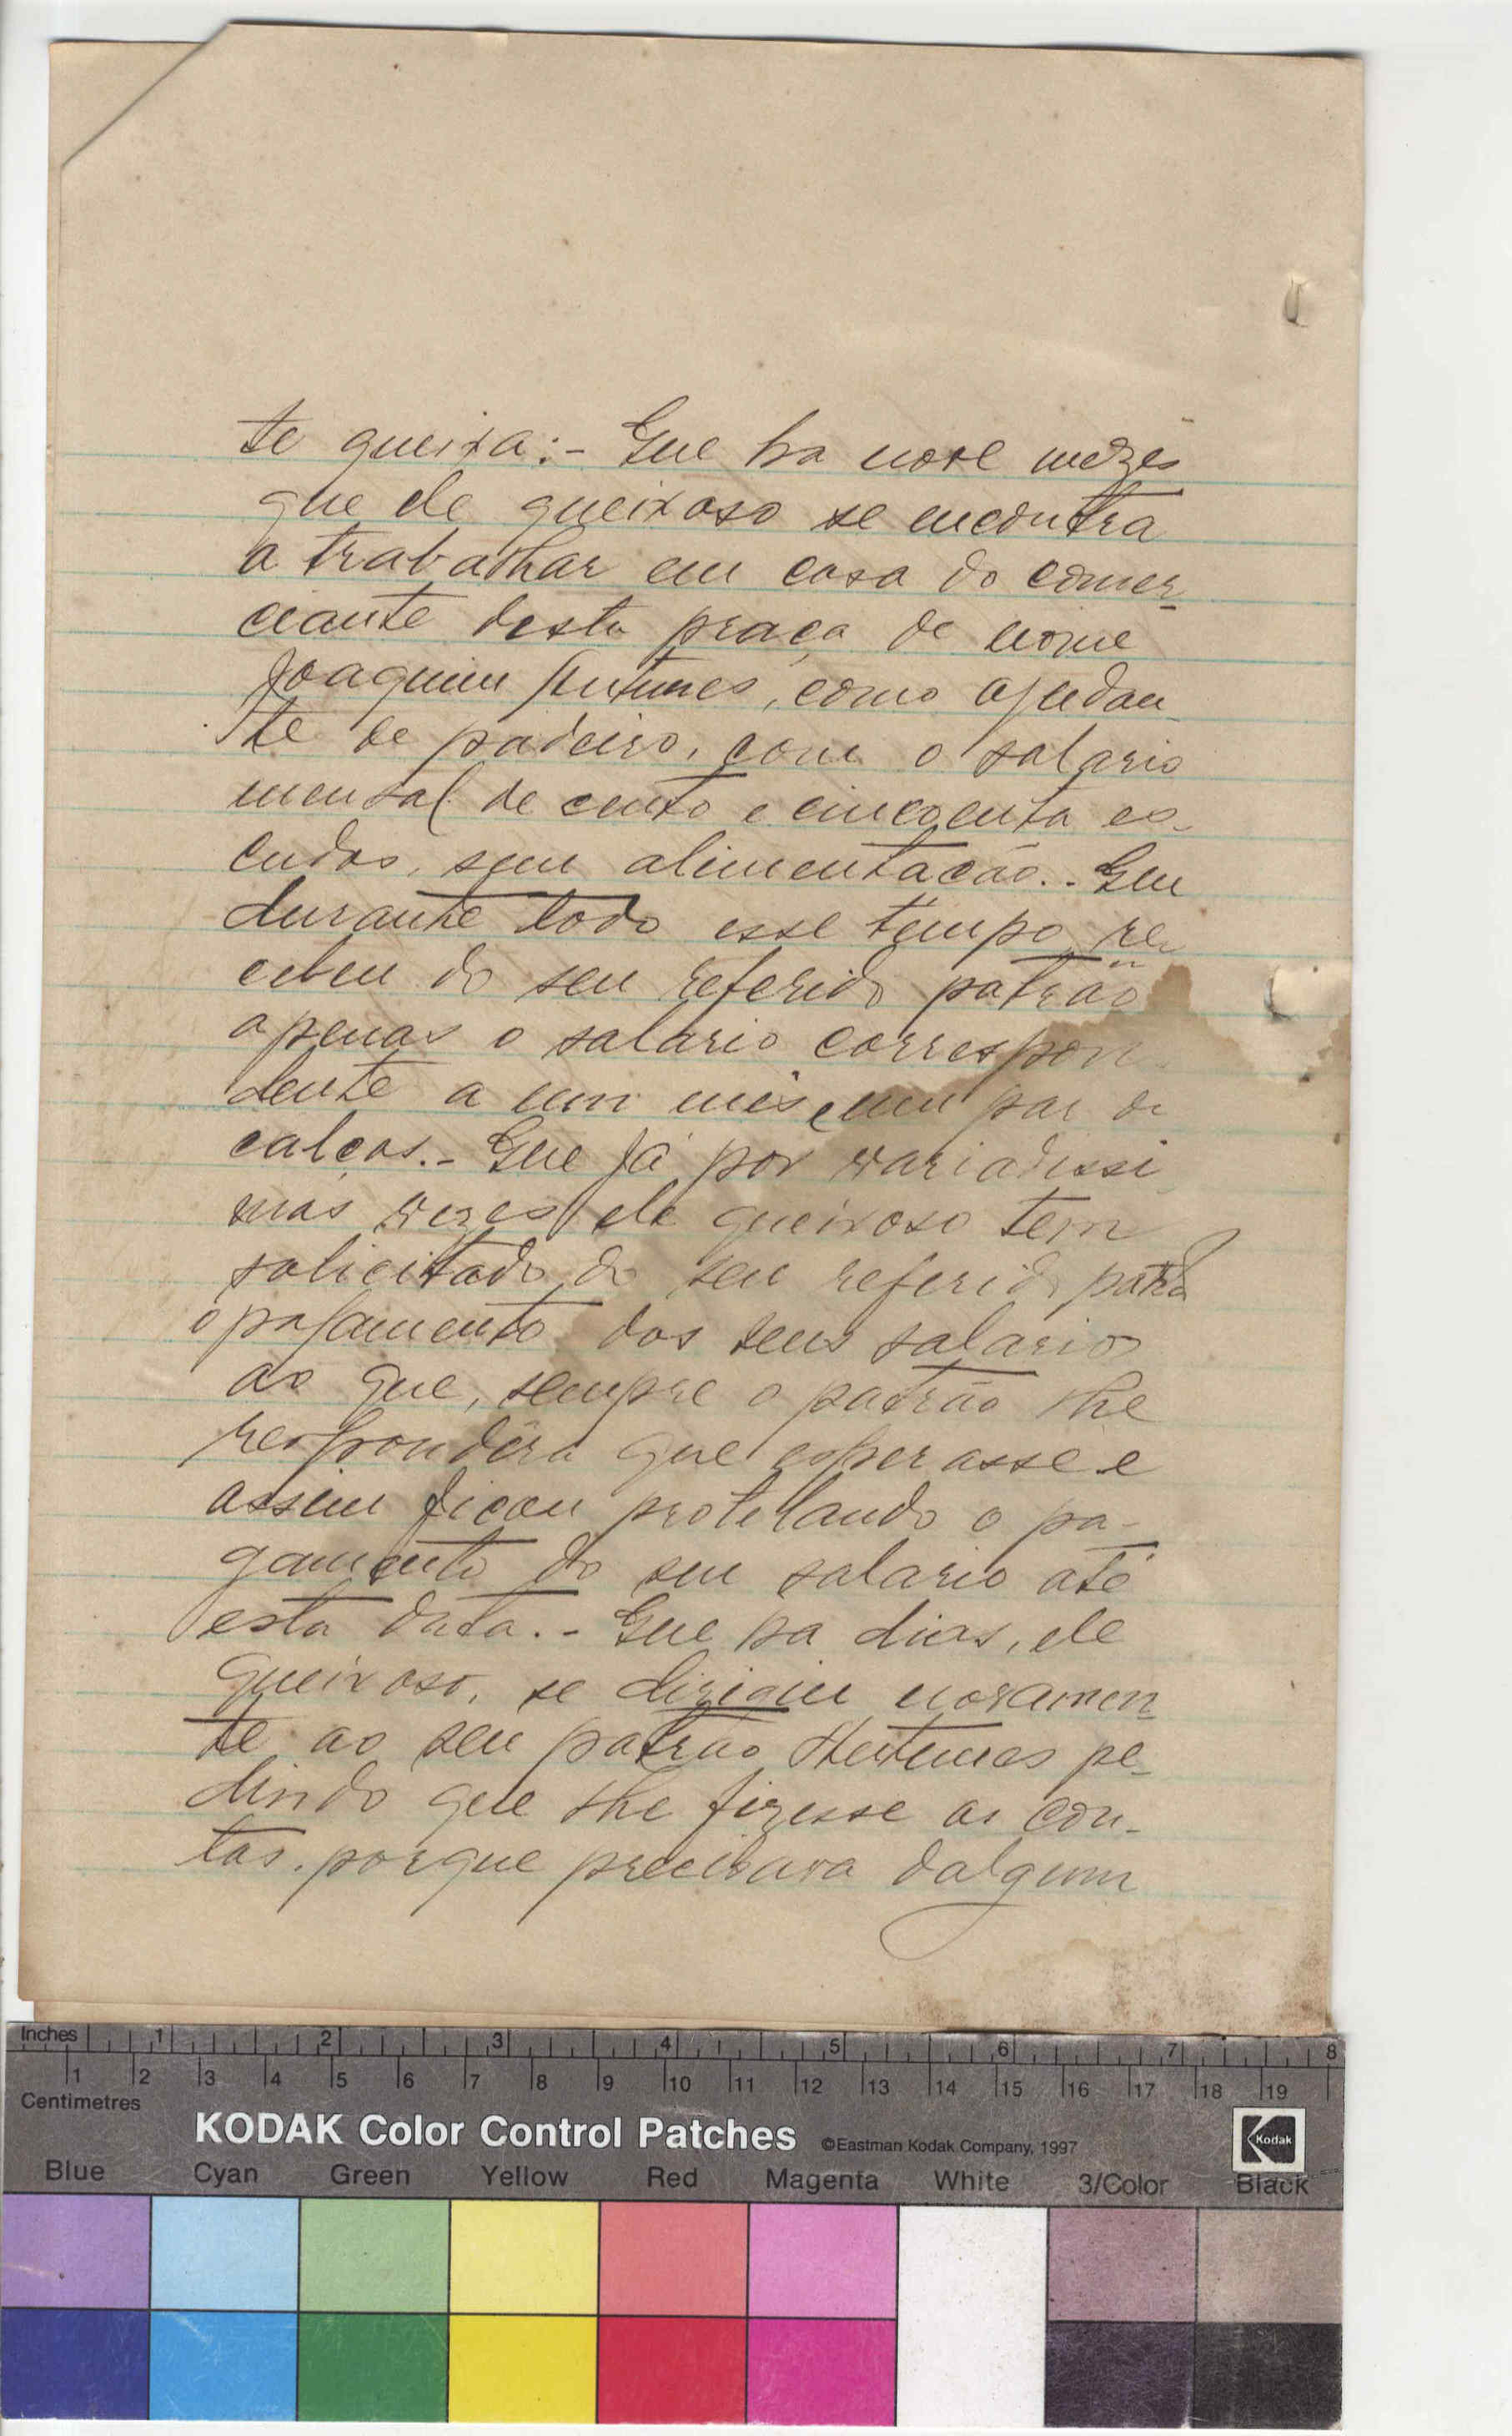 te queixa:- Que ha nove mezes
que ele queixoso se encontra
a trabalhar em casa do comer-
ciante desta praça de nome
Joaquim Antunes, como ajudan-
te de padeiro, com o salario
mensal de cento e cincoenta es-
cudos, sem alimentação.- Que
durante todo esse tempo re-
cebeu do seu referido patrão
apenas o salario correspon-
dente a um mês e um par de
calças.- Que já por variadissi
mas vezes ele queixoso tem
solicitado do seu referido patrão
o pagamento dos seus salarios
ao que, sempre o patrão lhe
respondêra que esperasse e
assim ficou protelando o pa-
gamento do seu salario até
esta data.- Que ha dias, ele
queixoso, se dirigiu novamen-
te ao seu patrão Antunes pe-
dindo que lhe fizesse as con-
tas, porque precisava dalgum
Inches 1 2 3 4 5 6 7 8
1 2 3 4 5 6 7 8 9 10 11 12 13 14 15 16 17 18 19
Centimetres
KODAK Color Control Patches ©Eastman Kodak Company, 1997 Kodak
Blue Cyan Green Yellow Red Magenta White 3/Color Black